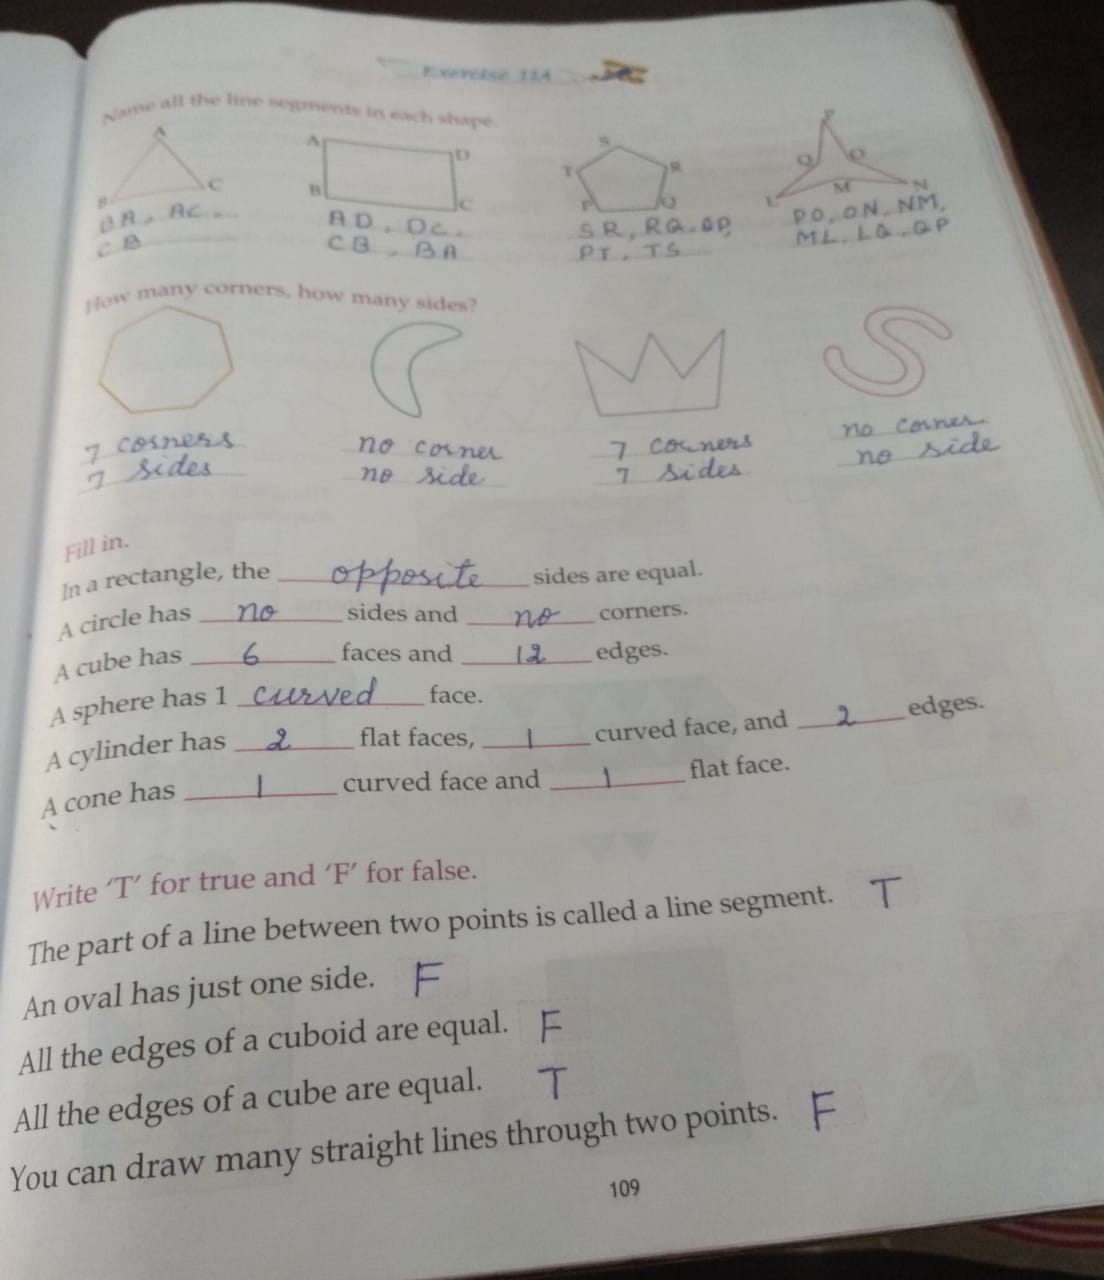 Exercise 11A
Name all the line segments in each shape.
A B C
A D B C
S T R P Q
P Q O L M N
BA, AC,
CB
AD, DC,
CB, BA
SR, RQ, QP,
PT, TS
PO, ON, NM,
ML, LQ, QP
How many corners, how many sides?
7 corners
7 sides
no corner
no side
7 corners
7 sides
no corner
no side
Fill in.
In a rectangle, the opposite sides are equal.
A circle has no sides and no corners.
A cube has 6 faces and 12 edges.
A sphere has 1 curved face.
A cylinder has 2 flat faces, 1 curved face, and 2 edges.
A cone has 1 curved face and 1 flat face.
Write 'T' for true and 'F' for false.
The part of a line between two points is called a line segment. T
An oval has just one side. F
All the edges of a cuboid are equal. F
All the edges of a cube are equal. T
You can draw many straight lines through two points. F
109